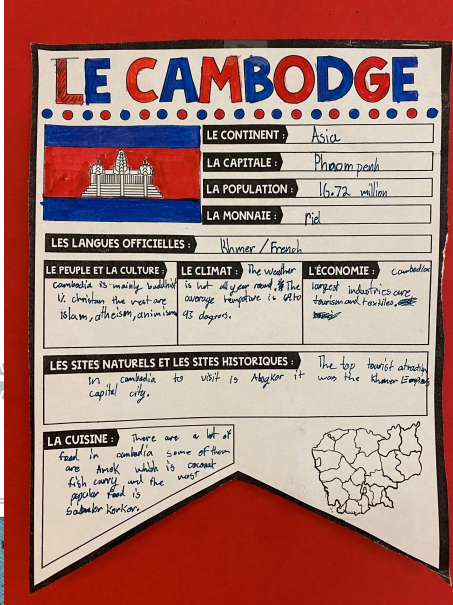 LE CAMBODGE
LE CONTINENT : Asia
LA CAPITALE : Phnompenh
LA POPULATION : 16.72 million
LA MONNAIE : riel
LES LANGUES OFFICIELLES : Khmer / French
LE PEUPLE ET LA CULTURE :
cambodia is mainly buddhist
1% christan the rest are
islam, atheism, animism
LE CLIMAT : The weather
is hot all year round. The
average tempature is 68 to
93 dagrees.
L'ÉCONOMIE : cambodias
largest industries are
tourism and textiles.
LES SITES NATURELS ET LES SITES HISTORIQUES : The top tourist atraction
in cambodia to visit is Angkor it was the Khmer Empires
capital city.
LA CUISINE : There are a lot of
food in cambodia some of them
are Amok which is coconut
fish curry and the most
popular food is
korkor.